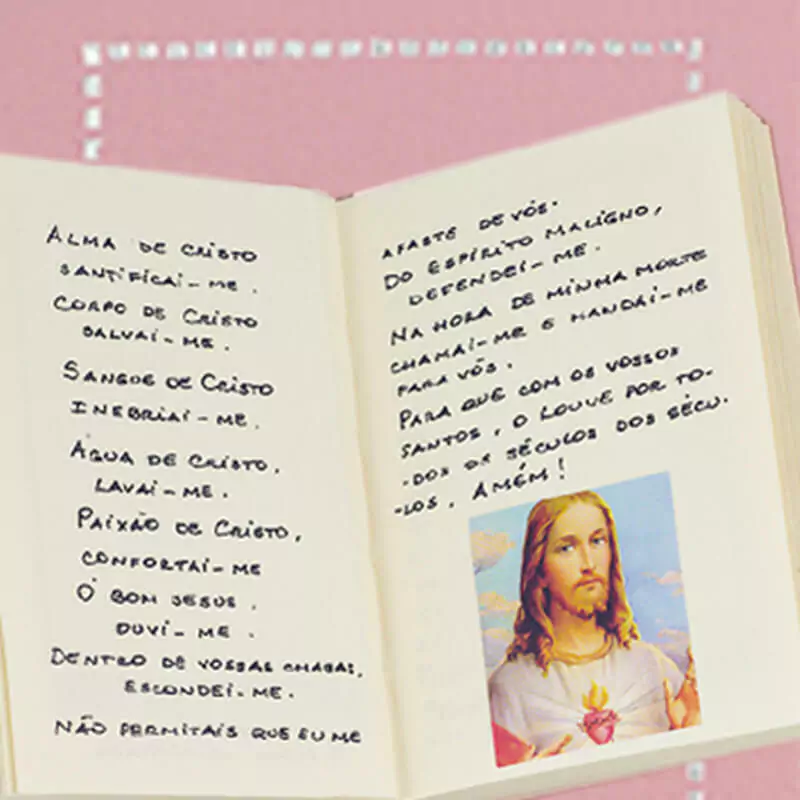 ALMA DE CRISTO
SANTIFICAI-ME.
CORPO DE CRISTO
SALVAI-ME.
SANGUE DE CRISTO
INEBRIAI-ME.
ÁGUA DE CRISTO,
LAVAI-ME.
PAIXÃO DE CRISTO,
CONFORTAI-ME
Ó BOM JESUS,
OUVI-ME.
DENTRO DE VOSSAS CHAGAS,
ESCONDEI-ME.
NÃO PERMITAIS QUE EU ME
AFASTE DE VÓS.
DO ESPÍRITO MALIGNO,
DEFENDEI-ME.
NA HORA DE MINHA MORTE
CHAMAI-ME E MANDAI-ME
PARA VÓS.
PARA QUE COM OS VOSSOS
SANTOS, O LOUVE POR TO-
-DOS OS SÉCULOS DOS SÉCU-
-LOS, AMÉM!